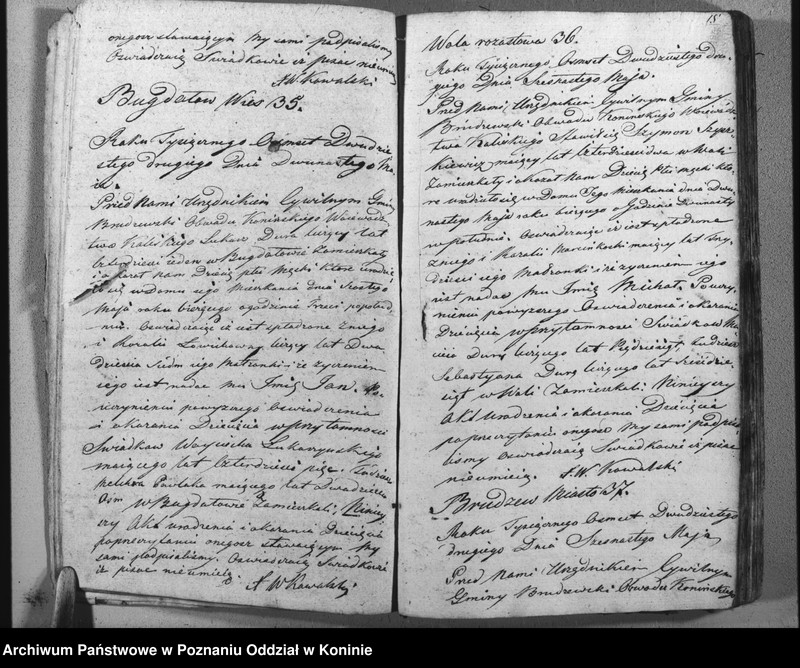 onegoż stawaiącym My sami podpisalismy
Oswiadczaią Swiadkowie iż pisac nieumieią
A W Kowalski
Bugdałow Wies 35.
Roku Tysiącznego Osmset Dwudzie
stego drugiego Dnia Dwunastego Ma
ia.
Przed Nami Urzędnikiem Cywilnym Gminy
Brudzewski Obwodu Konińskiego Woiewodz
twa Kaliskiego Łukasz Dura liczący lat
trzydziesci ieden w Bugdałowie Zamieszkały
i okazał nam Dziecię płci Męski ktore urodzi
ło się w domu iego mieszkania dnia Szostego
Maja roku bieżącego o godzinie Trzeci popołud
niu. Oswiadczaiąc iż iest spłodzone z niego
i Rozalii liczący lat Dwa
dziescia Siedm iego Małżonki i że życzeniem
iego iest nadac mu Imię Jan. Po
uczynieniu powyższego Oswiadczenia
i okazania Dziecięcia w przytomnosci
Swiadkow Woyciecha Lukaszewskiego
maiącego lat czterdziesci pięc. Tudzież
Pawlaka maiącego lat Dwadziescia
Osm w Bugdałowie Zamieszkali, Niniey
szy Akt urodzenia i okazania Dziecięcia
po przeczytaniu onegoż stawaiącym My
sami podpisalismy. Oswiadczaią Swiadkowie
iż pisac nieumieią.
A W Kowalski
15
Wola rozastowa 36.
Roku Tysiącznego Osmset Dwudziestego dru
giego Dnia Szesnastego Maja.
Przed Nami Urzędnikiem Cywilnym Gminy
Brudzewski Obwodu Konińskiego Woiewodz
twa Kaliskiego Stawił się Szymon
maiący lat czterdziesci dwa w Woli
Zamieszkały i okazał Nam Dziecię płci męski kto
re urodziło się w Domu Jego Mieszkania dnia Dwu
nastego Maja roku bieżącego o Godzinie Dwunasty
w południe. Oswiadczaiąc iż iest spłodzone
z niego i Rozalii Marcinkoski maiący lat Trzy
dziesci iego Małżonki i że życzeniem iego
iest nadac Mu Imię Michał. Po uczy
nieniu powyższego Oswiadczenia i okazania
Dziecięcia w przytomnosci Swiadkow Ma
cieia Dury liczącego lat Pięcdziesiąt, tudzież
Sebastyana Dury liczącego lat Szescdzie
siąt w Woli Zamieszkali. Ninieyszy
Akt Urodzenia i okazania Dziecięcia
po przeczytaniu onegoż My sami podpisa
lismy oswiadczaią Swiadkowie iż pisac
nieumieią. A. W. Kowalski
Brudzew Miasto 37.
Roku Tysiącznego Osmset Dwudziestego
drugiego Dnia Szesnastego Maja
Przed Nami Urzędnikiem Cywilnym
Gminy Brudzewski Obwodu Konińskiego
Archiwum Państwowe w Poznaniu Oddział w Koninie